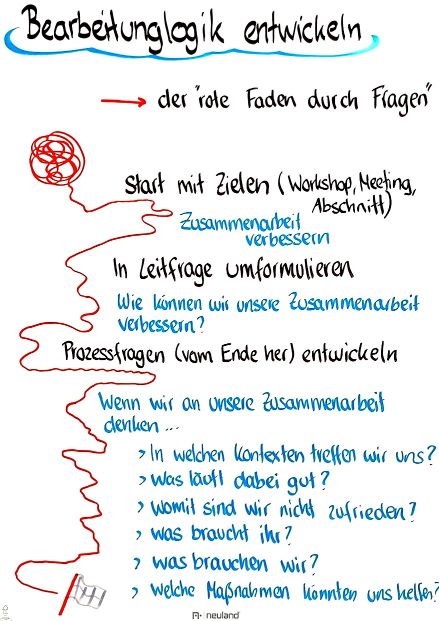 Bearbeitungslogik entwickeln
der "rote Faden durch Fragen"
Start mit Zielen (Workshop, Meeting,
Abschnitt)
Zusammenarbeit
verbessern
In Leitfrage umformulieren
Wie können wir unsere Zusammenarbeit
verbessern?
Prozessfragen (vom Ende her) entwickeln
Wenn wir an unsere Zusammenarbeit
denken ...
> In welchen Kontexten treffen wir uns?
> Was läuft dabei gut?
> womit sind wir nicht zufrieden?
> was braucht ihr?
> was brauchen wir?
> welche Maßnahmen könnten uns helfen?
neuland